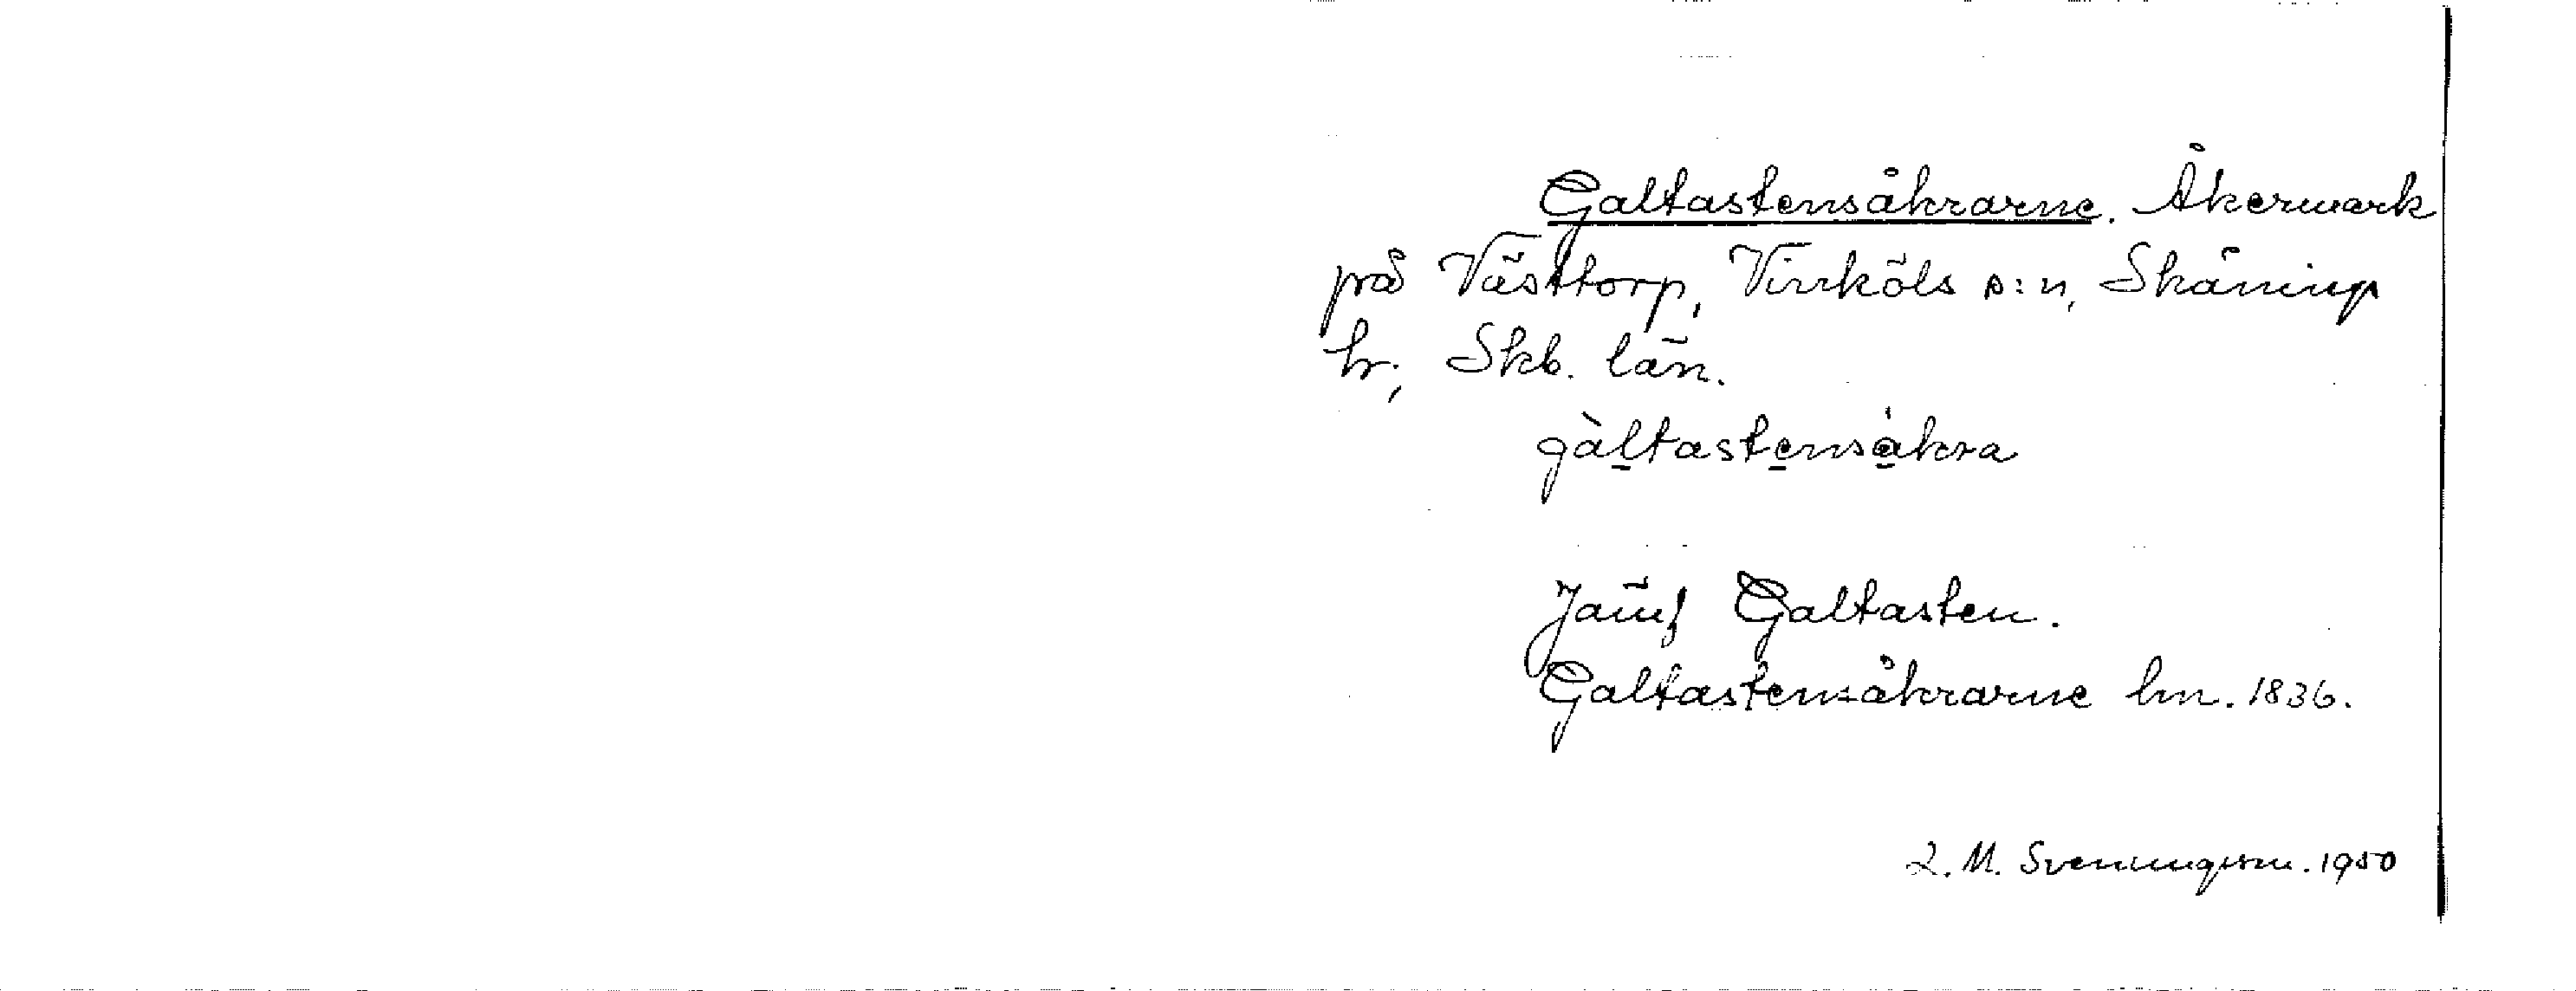 Galtastensåkrarne. Åkermark
på Västtorp, Vinköls s:n, Skånings
hr, Skb. län.
gàltastensåkra
Jämf Galtasten.
Galtastensåkrarne hm. 1836.
L. M. Svenungsson. 1950